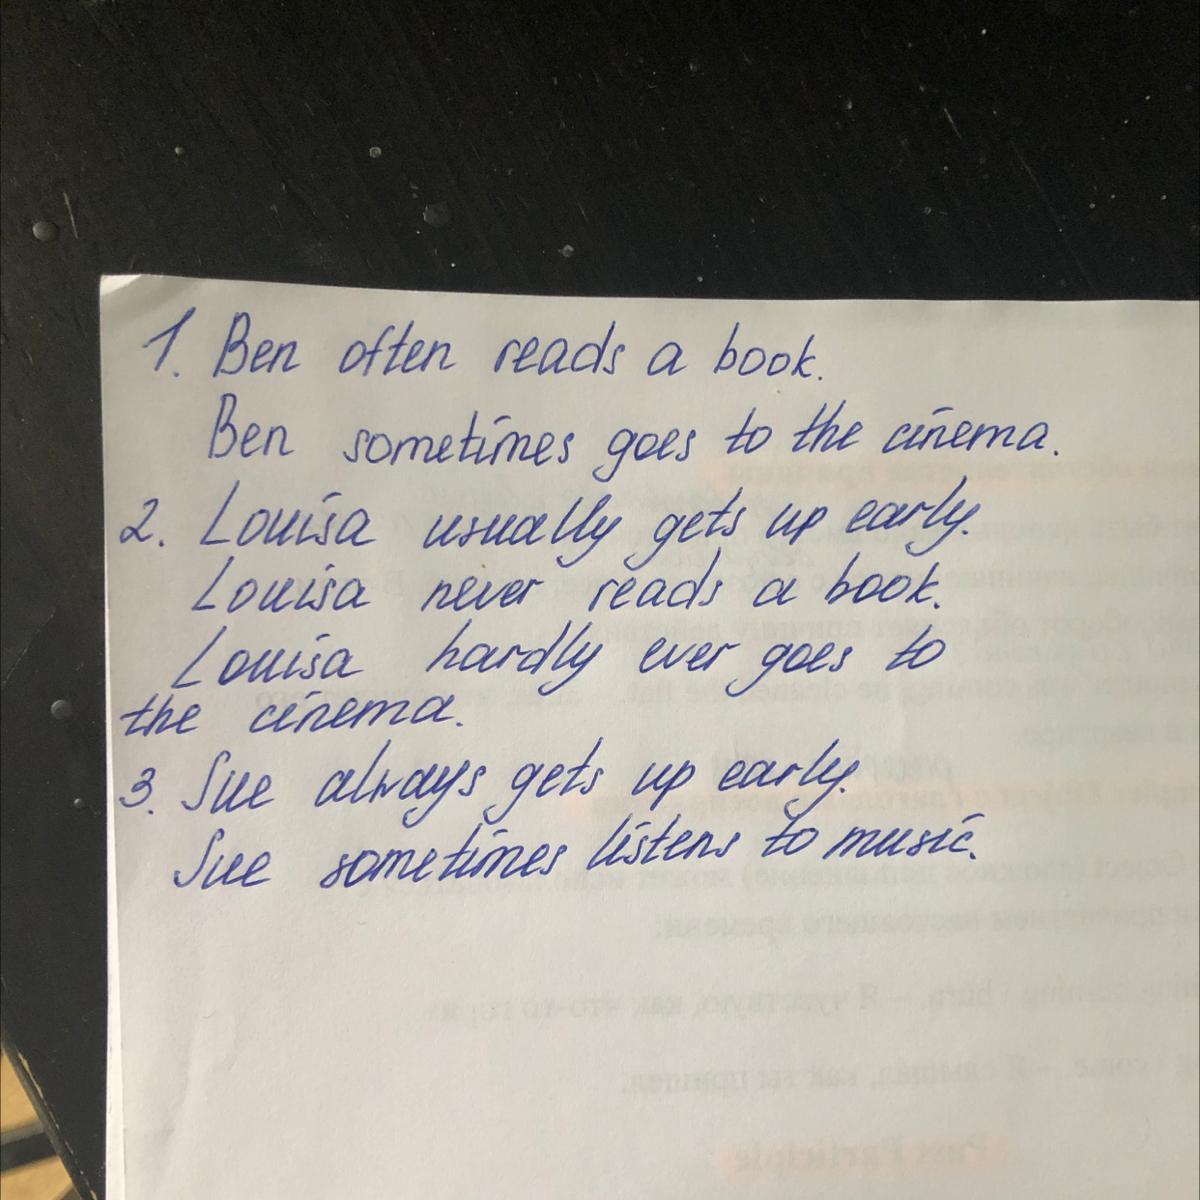 1. Ben often reads a book.
Ben sometimes goes to the cinema.
2. Louisa usually gets up early.
Louisa never reads a book.
Louisa hardly ever goes to
the cinema.
3. Sue always gets up early.
Sue sometimes listens to music.